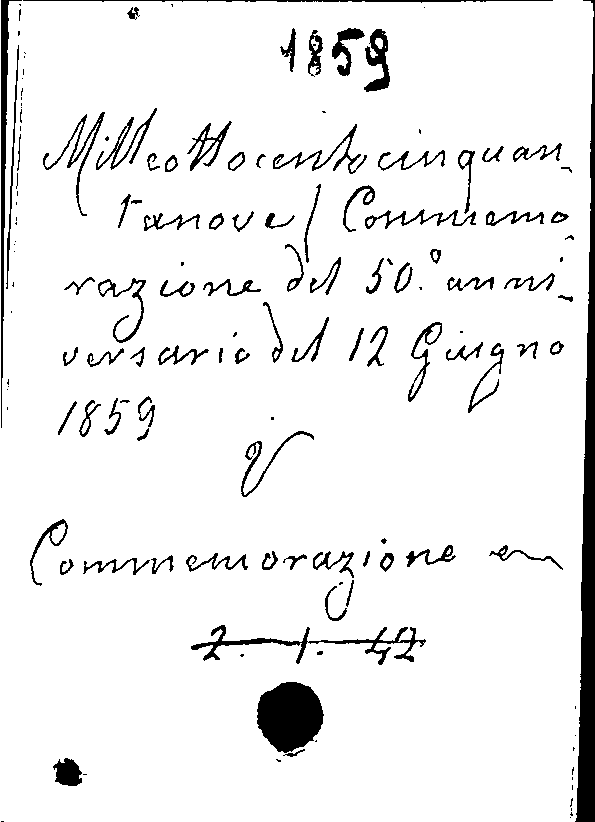 1859
Milleottocentocinquan-
tanove / Commemo-
razione del 50.° anni-
versario del 12 Giugno
1859
V
Commemorazione
2. 1. 42